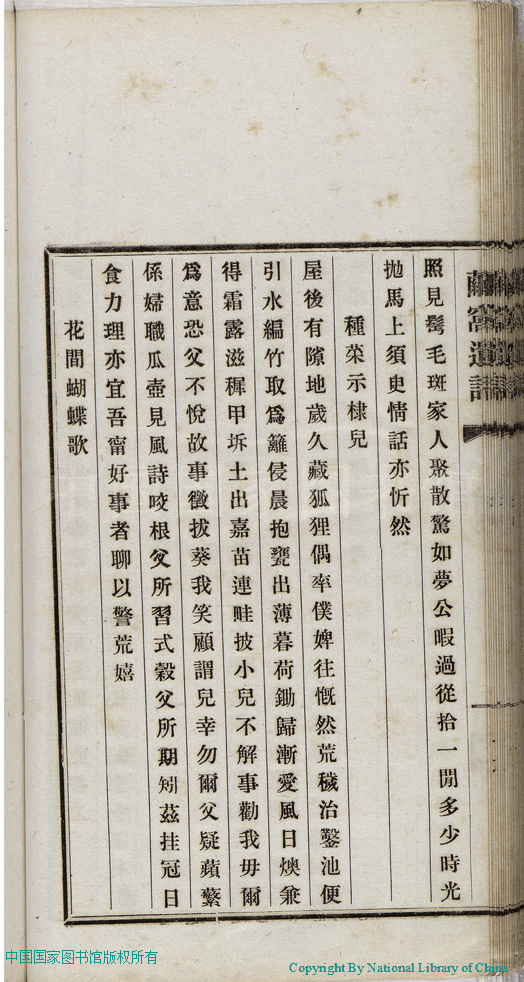 繭窩遺詩
照見鬢毛斑家人聚散驚如夢公暇過從拾一閒多少時光
拋馬上須史情話亦忻然
種菜示棣兒
屋後有隙地歲久藏狐狸偶率僕婢往慨然荒穢治鑿池便
引水編竹取為籬侵晨抱甕出薄暮荷鋤歸漸愛風日燠兼
得霜露滋穉甲坼土出嘉苗連畦披小兒不解事勸我毋爾
為意恐父不悅故事徵拔葵我笑顧謂兒幸勿爾父疑蘋蘩
係婦職瓜壺見風詩咬根父所習式穀父所期矧茲挂冠日
食力理亦宜吾甯好事者聊以警荒嬉
花間蝴蝶歌
中国国家图书馆版权所有
Copyright By National Library of China